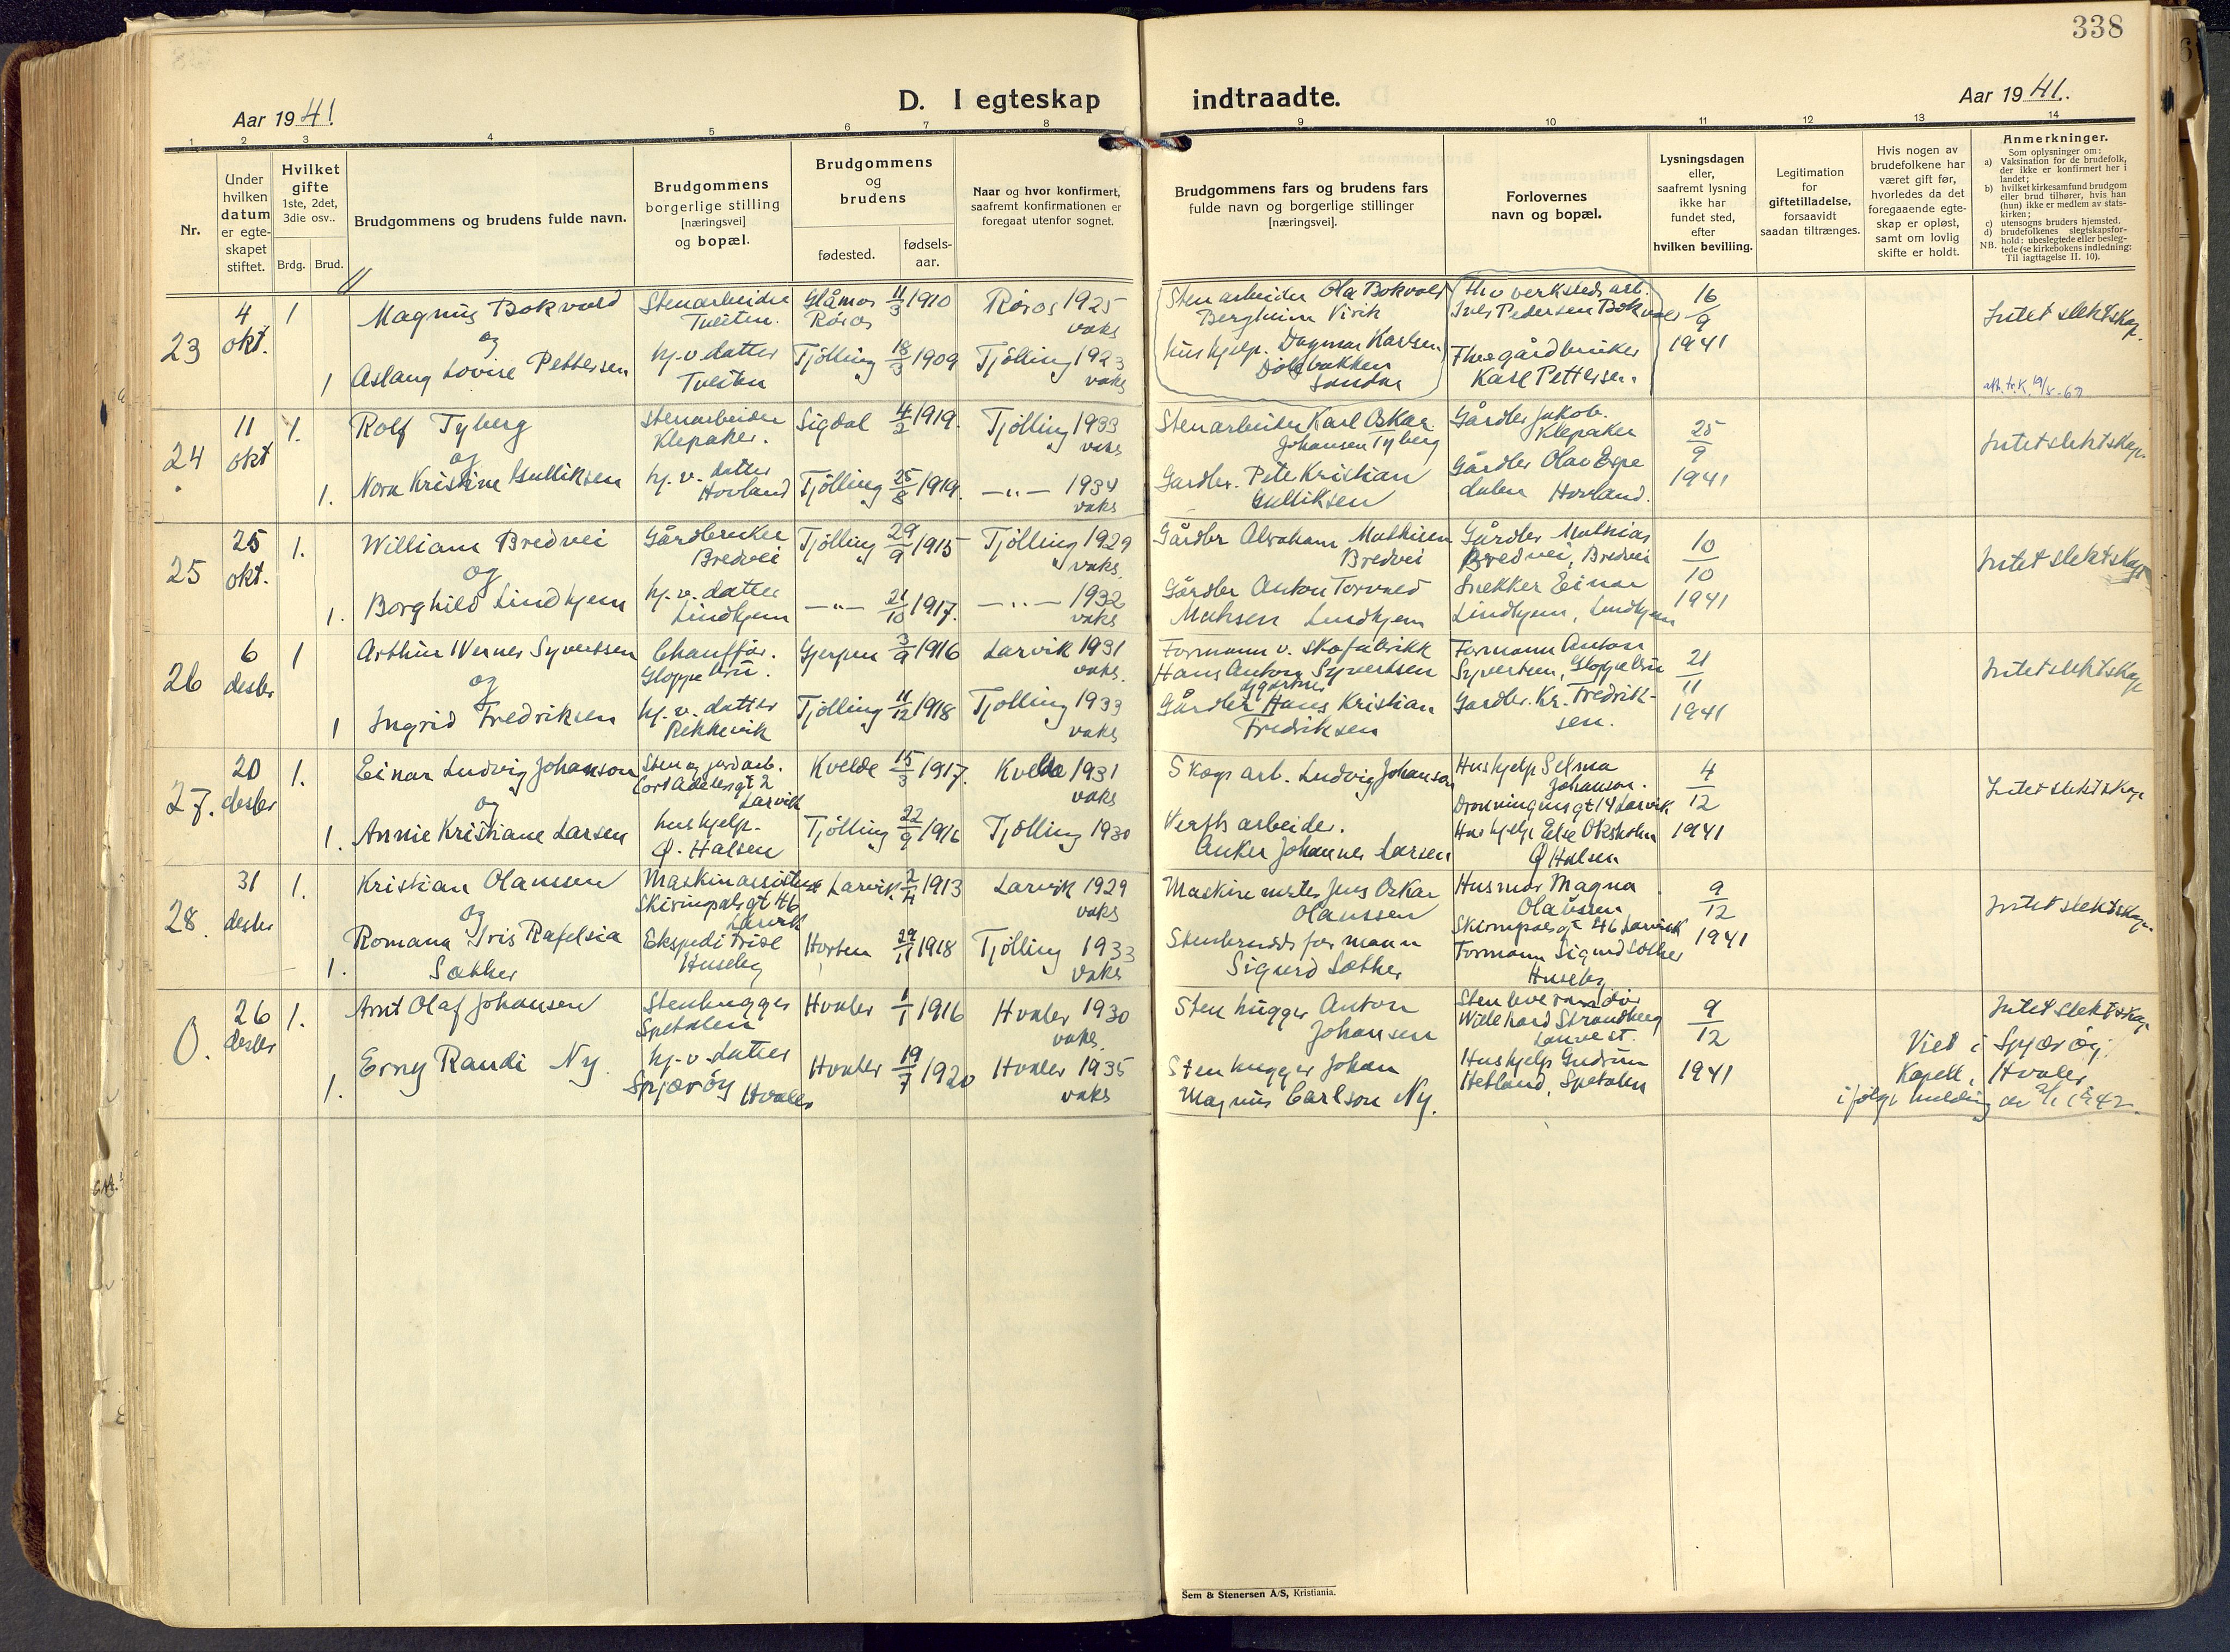 338
Aar 1941.
D. I egteskap indtraadte.
Aar 1941.
1 2 3 4 5 6 7 8 9 10 11 12 13 14
Nr.
Under hvilken datum er egteskapet stiftet.
Hvilket gifte 1ste, 2det, 3die osv..
Brdg. Brud.
Brudgommens og brudens fulde navn.
Brudgommens borgerlige stilling [næringsvei] og bopæl.
Brudgommens og brudens
fødested.
fødsels-aar.
Naar og hvor konfirmert, saafremt konfirmationen er foregaat utenfor sognet.
Brudgommens fars og brudens fars fulde navn og borgerlige stillinger [næringsvei].
Forlovernes navn og bopæl.
Lysningsdagen eller, saafremt lysning ikke har fundet sted, efter hvilken bevilling.
Legitimation for giftetilladelse, forsaavidt saadan tiltrænges.
Hvis nogen av brudefolkene har været gift før, hvorledes da det foregaaende egteskap er opløst, samt om lovlig skifte er holdt.
Anmerkninger.
Som oplysninger om:
a) Vaksination for de brudefolk, der ikke er konfirmert her i landet;
b) hvilket kirkesamfund brudgom eller brud tilhører, hvis han (hun) ikke er medlem av statskirken;
c) utensogns bruders hjemsted.
d) brudefolkenes slegtskapsforhold: ubeslegtede eller beslegtede (se kirkebokens indledning:
NB. Til iagttagelse II. 10).
23 4 okt. 1 Magnus Bokvold Stenarbeider Tveiten. Glåmos Røros 11/3 1910 Røros 1925 vaks
og
1 Aslaug Lovise Pettersen hj. v. datter Tveiten Tjölling 18/3 1909 Tjölling 1923 vaks
Stenarbeider Ola Bokvold Bergheim Virik
hushjelp. Dagmar Karlsen Sandar
Fhv verksteds arb. Iver Pedersen Bokvold
Fhv gårdbruker Karl Pettersen.
16/9 1941
Intet slektskap.
24 11 okt 1. Rolf Tyberg Stenarbeider Klepaker. Sigdal 4/2 1919. Tjölling 1933 vaks
og
1. Nora Kristine Gulliksen hj. v. datter Hovland Tjölling 25/8 1919. —"— 1934 vaks
Stenarbeider Karl Oskar Johansen Tyberg
Gardbr. Peter Kristian Gulliksen
Gårdbr Jakob Klepaker
Gårdbr Olav Espedalen Hovland.
25/9 1941
Intet slektskap.
25 25 okt. 1. William Bredvei Gårdbruker Bredvei Tjölling 29/9 1915 Tjölling 1929 vaks.
og
1. Borghild Lindhjem hj. v. datter Lindhjem —"— 21/10 1917. —"— 1932 vaks
Gårdbr Abraham Mathisen Bredvei
Gårdbr Anton Torvald Mathisen Lindhjem
Gårdbr Mathias Bredvei, Bredvei
Snekker Einar Lindhjem, Lindhjem
10/10 1941
Intet slektskap
26 6 desbr 1 Arthur Werner Syvertsen Chauffør. Gloppe bru. Gjerpen 3/9 1916 Larvik 1931 vaks.
og
1 Ingrid Fredriksen hj. v. datter Rekkevik Tjölling 11/12 1918 Tjölling 1933 vaks
Formann v. Skofabrikk Hans Anton Syvertsen
Gårdbr og gartner Hans Kristian Fredriksen
Formann Anton Syvertsen, Gloppebru
Gardbr. Kr. Fredriksen.
21/11 1941
Intet slektskap
27. 20 desbr 1. Einar Ludvig Johanson Sten og jordarb. Cort Adelersgt 2 Larvik Kvelde 15/3 1917. Kvelde 1931 vaks
og
1. Annie Kristiane Larsen hushjelp. Ø. Halsen Tjölling 22/9 1916 Tjölling 1930
Skogs arb. Ludvig Johanson
Verfts arbeider. Anker Johannes Larsen
Hushjelp Selma Johanson. Dronningensgt 14 Larvik
Hushjelp Else Oksholm Ø Halsen
4/12 1941
Intet slektskap
28. 31 desbr 1. Kristian Olaussen Maskinassistent Skiringsalsgt 46 Larvik Larvik 2/4 1913 Larvik 1929 vaks
og
1. Romana Iris Rafelsia Sæther Ekspeditrise Huseby Horten 29/11 1918 Tjölling 1933 vaks
Maskinmester Jens Oskar Olaussen
Stenbruddsformann Sigurd Sæther
Husmor Magna Olaussen Skiringsalsgt 46 Larvik
Formann Sigurd Sæther Huseby
9/12 1941
Intet slektskap.
0. 26 desbr 1. Arnt Olaf Johansen Stenhugger Spetalen Hvaler 1/1 1916 Hvaler 1930 vaks.
1. Erny Randi Ny. hj. v. datter Spjærøy Hvaler Hvaler 19/7 1920 Hvaler 1935 vaks
Stenhugger Anton Johansen
Stenhugger Johan Magnus Carlson Ny.
Stenleverandør Willehard Strandberg Lauve st.
Hushjelp Gudrun Hetland, Spetalen
9/12 1941
Intet slektskap
Viet i Spjærøy
Kapell, Hvaler
ifølge melding av 2/1 1942.
Sem & Stenersen A/S, Kristiania.